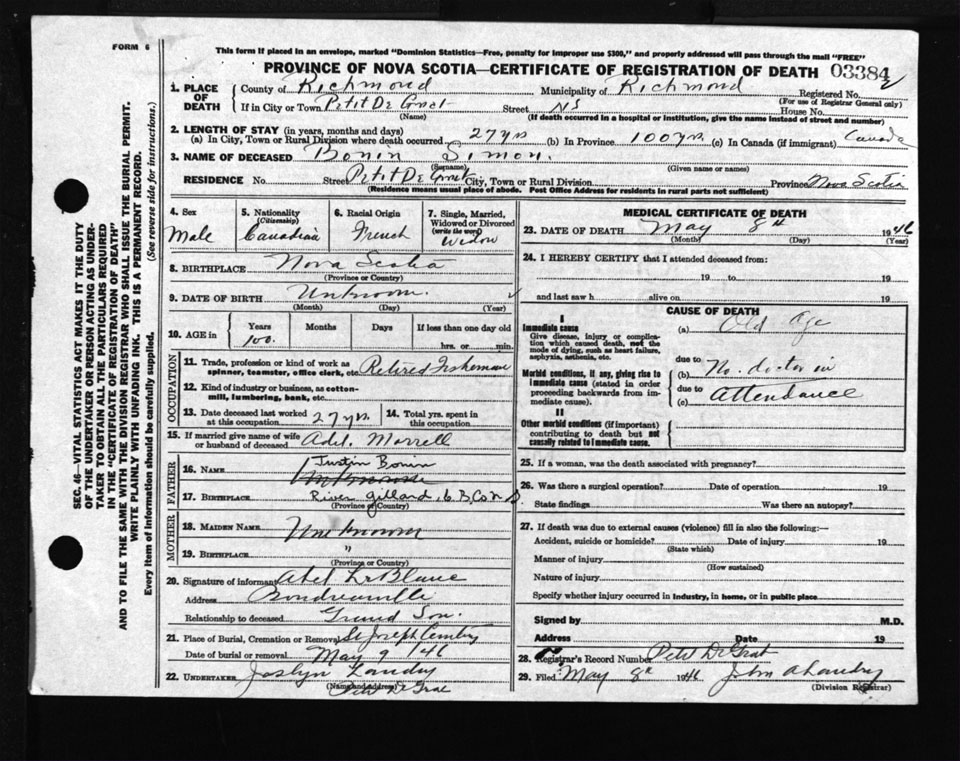 FORM 6
This form if placed in an envelope, marked "Dominion Statistics—Free, penalty for improper use $300," and properly addressed will pass through the mail "FREE"
PROVINCE OF NOVA SCOTIA—CERTIFICATE OF REGISTRATION OF DEATH 03384
1. PLACE OF DEATH
County of Richmond Municipality of Richmond Registered No.
(For use of Registrar General only)
If in City or Town Petit De Grat Street NS House No.
(Name) (If death occurred in a hospital or institution, give the name instead of street and number)
2. LENGTH OF STAY (in years, months and days)
(a) In City, Town or Rural Division where death occurred 27 yrs (b) In Province 100 yrs. (c) In Canada (if immigrant) Canada
3. NAME OF DECEASED Bonin Simon.
(Surname) (Given name or names)
RESIDENCE No. Street Petit De Grat City, Town or Rural Division Province Nova Scotia
(Residence means usual place of abode. Post Office Address for residents in rural parts not sufficient)
4. Sex
Male
5. Nationality
(Citizenship)
Canadian
6. Racial Origin
French
7. Single, Married, Widowed or Divorced
(write the word)
Widow
8. BIRTHPLACE Nova Scotia
(Province or Country)
9. DATE OF BIRTH Unknown.
(Month) (Day) (Year)
10. AGE in
Years Months Days If less than one day old
100. hrs. or min.
OCCUPATION
11. Trade, profession or kind of work as spinner, teamster, office clerk, etc. Retired Fisherman
12. Kind of industry or business, as cotton-mill, lumbering, bank, etc.
13. Date deceased last worked at this occupation 27 yrs.
14. Total yrs. spent in this occupation
15. If married give name of wife or husband of deceased Adel. Marrell
FATHER
16. NAME Justin Bonin
Unknown
17. BIRTHPLACE River Gillard. C.B, Co N S
(Province or Country)
MOTHER
18. MAIDEN NAME Unknown
19. BIRTHPLACE "
20. Signature of informant Abel LeBlanc
Address Boudreauville
Relationship to deceased Grand Son.
21. Place of Burial, Cremation or Removal St Joseph Cemetry
Date of burial or removal May 9 /46
22. UNDERTAKER Joslyn Landry
(Name and address)
Petit De Grat
MEDICAL CERTIFICATE OF DEATH
23. DATE OF DEATH May 8th 1946
(Month) (Day) (Year)
24. I HEREBY CERTIFY that I attended deceased from:
19 to 19
and last saw h alive on 19
CAUSE OF DEATH
I
Immediate cause
Give disease, injury or complication which caused death, not the mode of dying, such as heart failure, asphyxia, asthenia, etc.
(a) Old Age
due to
Morbid conditions, if any, giving rise to immediate cause (stated in order proceeding backwards from immediate cause).
(b) No. doctor in
due to
(c) Attendance
II
Other morbid conditions (if important) contributing to death but not causally related to immediate cause.
25. If a woman, was the death associated with pregnancy?
26. Was there a surgical operation? Date of operation 19
State findings Was there an autopsy?
27. If death was due to external causes (violence) fill in also the following:—
Accident, suicide or homicide? Date of injury 19
(State which)
Manner of injury
(How sustained)
Nature of injury
Specify whether injury occurred in industry, in home, or in public place
Signed by M.D.
Address Date 19
28. Registrar's Record Number Petit De Grat
29. Filed May 8th 1946 John A Landry
(Division Registrar)
SEC. 46—VITAL STATISTICS ACT MAKES IT THE DUTY
OF THE UNDERTAKER OR PERSON ACTING AS UNDER-
TAKER TO OBTAIN ALL THE PARTICULARS REQUIRED
IN THE "CERTIFICATE OF REGISTRATION OF DEATH"
AND TO FILE THE SAME WITH THE DIVISION REGISTRAR WHO SHALL ISSUE THE BURIAL PERMIT.
WRITE PLAINLY WITH UNFADING INK. THIS IS A PERMANENT RECORD.
Every item of information should be carefully supplied. (See reverse side for instructions.)